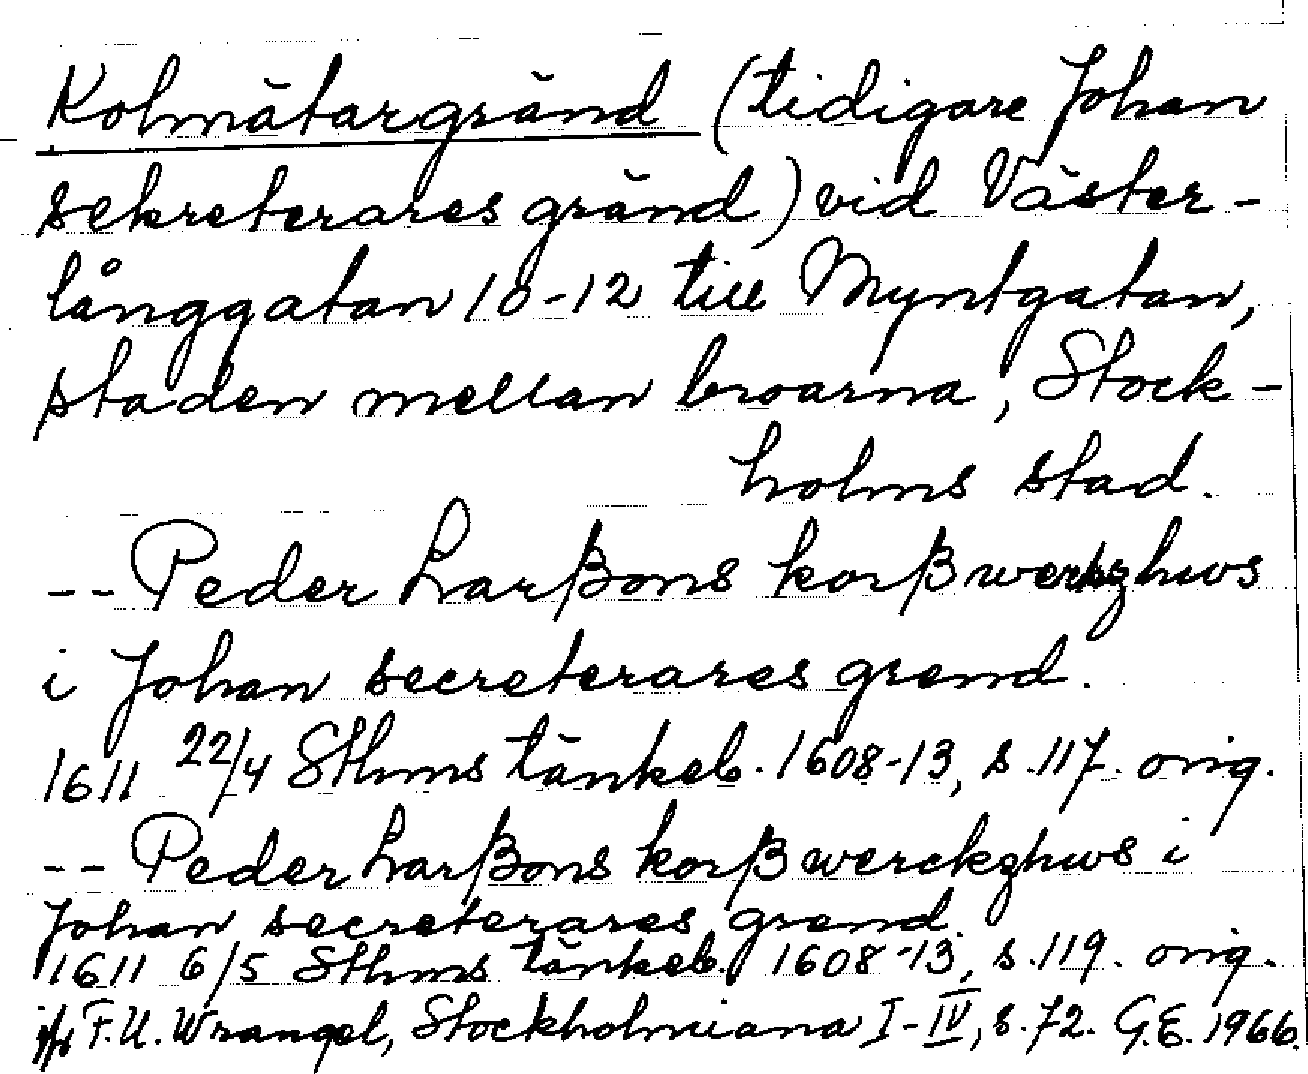 Kolmätargränd (tidigare Johan
sekreterares gränd) vid Väster-
långgatan 10-12 till Myntgatan,
staden mellan broarna, Stock-
holms stad.
-- Peder Larßons korßwerkzhws
i Johan secreterares grend.
1611 22/4 Sthms tänkeb. 1608-13, s. 117. orig.
-- Peder Larßons korßwerckzhws i
Johan secreterares grend.
1611 6/5 Sthms tänkeb. 1608-13, s. 119. orig.
jfr F.U. Wrangel, Stockholmiana I-IV, s. 72. G.E. 1966.